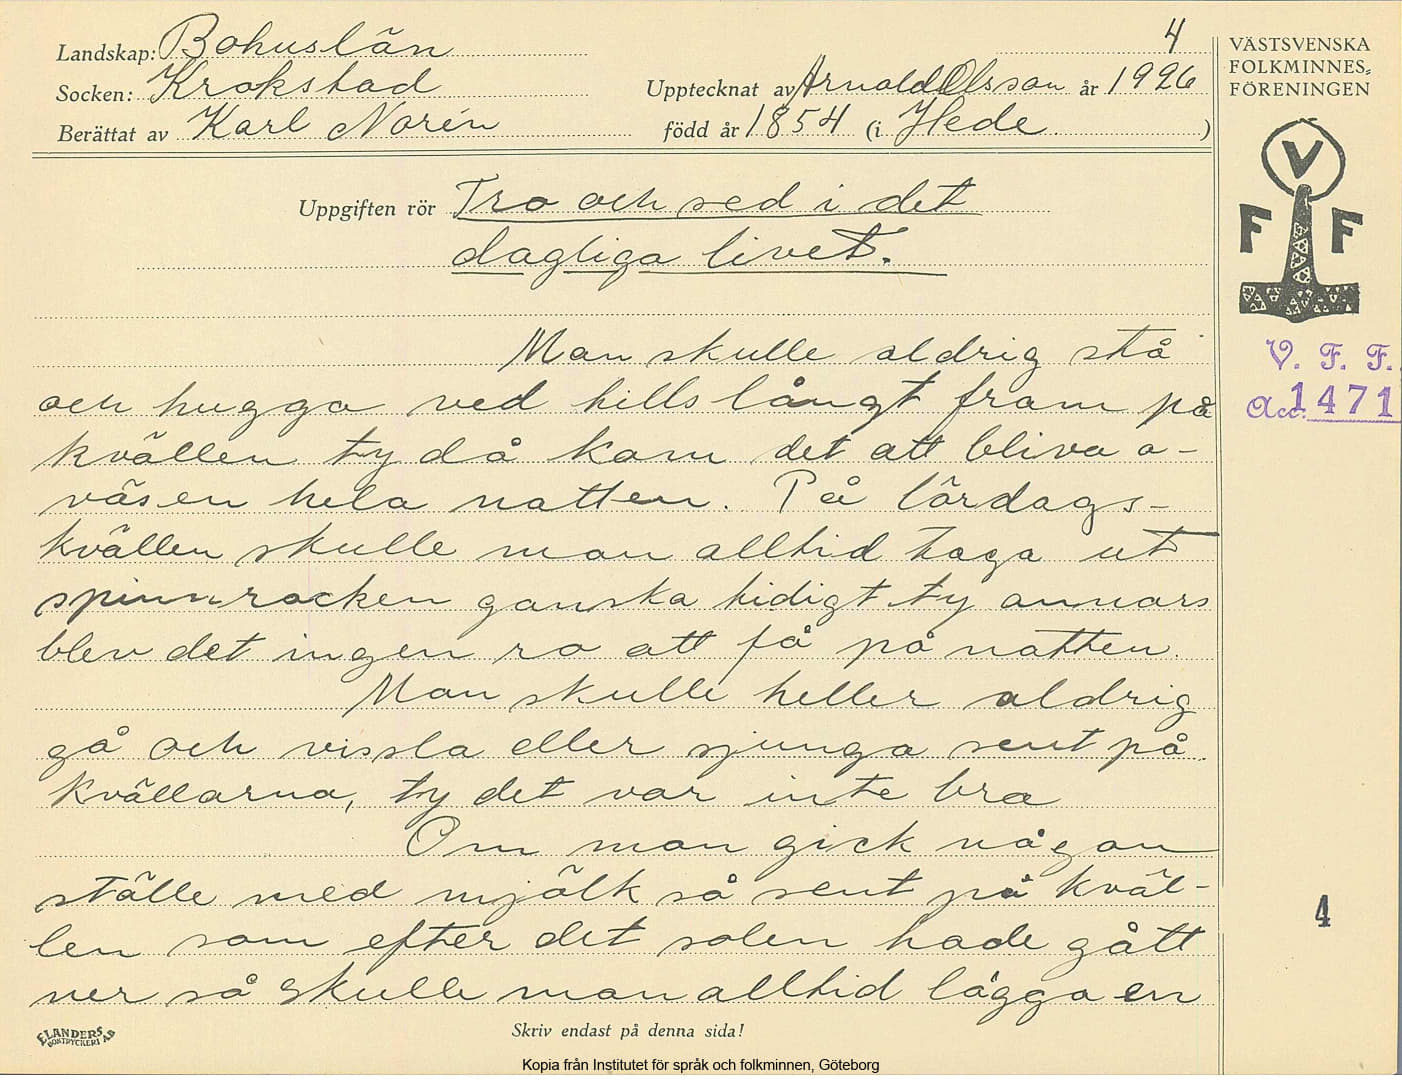 Landskap: Bohuslän
4
Socken: Krokstad
Upptecknat av Arnold Olsson år 1926
Berättat av Karl Norén
född år 1854 (i Hede )
VÄSTSVENSKA
FOLKMINNES-
FÖRENINGEN
V
F F
Uppgiften rör Tro och sed i det
dagliga livet.
V. F. F.
Acc. 1471
Man skulle aldrig stå
och hugga ved tills långt fram på
kvällen ty då kom det att bliva o-
väsen hela natten. På lördags-
kvällen skulle man alltid taga ut
spinnrocken ganska tidigt ty annars
blev det ingen ro att få på natten.
Man skulle heller aldrig
gå och vissla eller sjunga sent på
kvällarna, ty det var inte bra
Om man gick någon
ställe med mjölk så sent på kväl-
len som efter det solen hade gått
ner så skulle man alltid lägga en
4
ELANDERS
BOKTRYCKERI AB
Skriv endast på denna sida!
Kopia från Institutet för språk och folkminnen, Göteborg